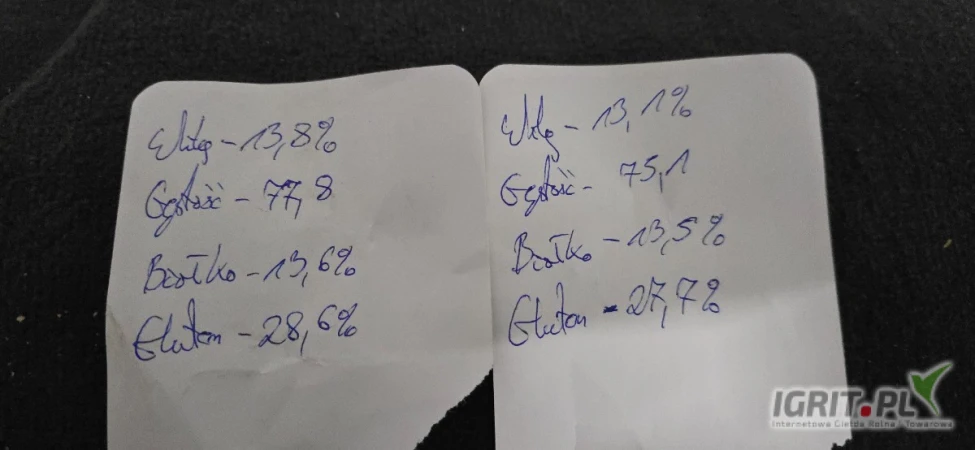 Wilg - 13,8%
Gęstość - 77,8
Białko - 13,6%
Gluten - 28,6%
Wilg - 13,1%
Gęstość - 75,1
Białko - 13,5%
Gluten - 27,7%
IGRIT.PL
Internetowa Giełda Rolna i Towarowa